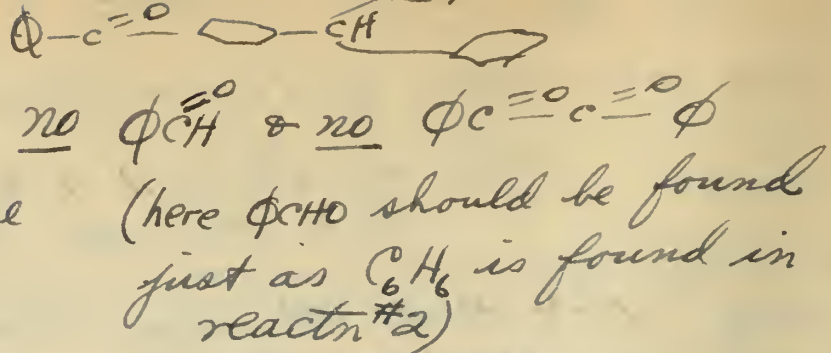 ϕ—C=O— —CH
no ϕCH=O & no ϕC=O—C=O ϕ
e (here ϕCHO should be found
just as C₆H₆ is found in
reactn #2)